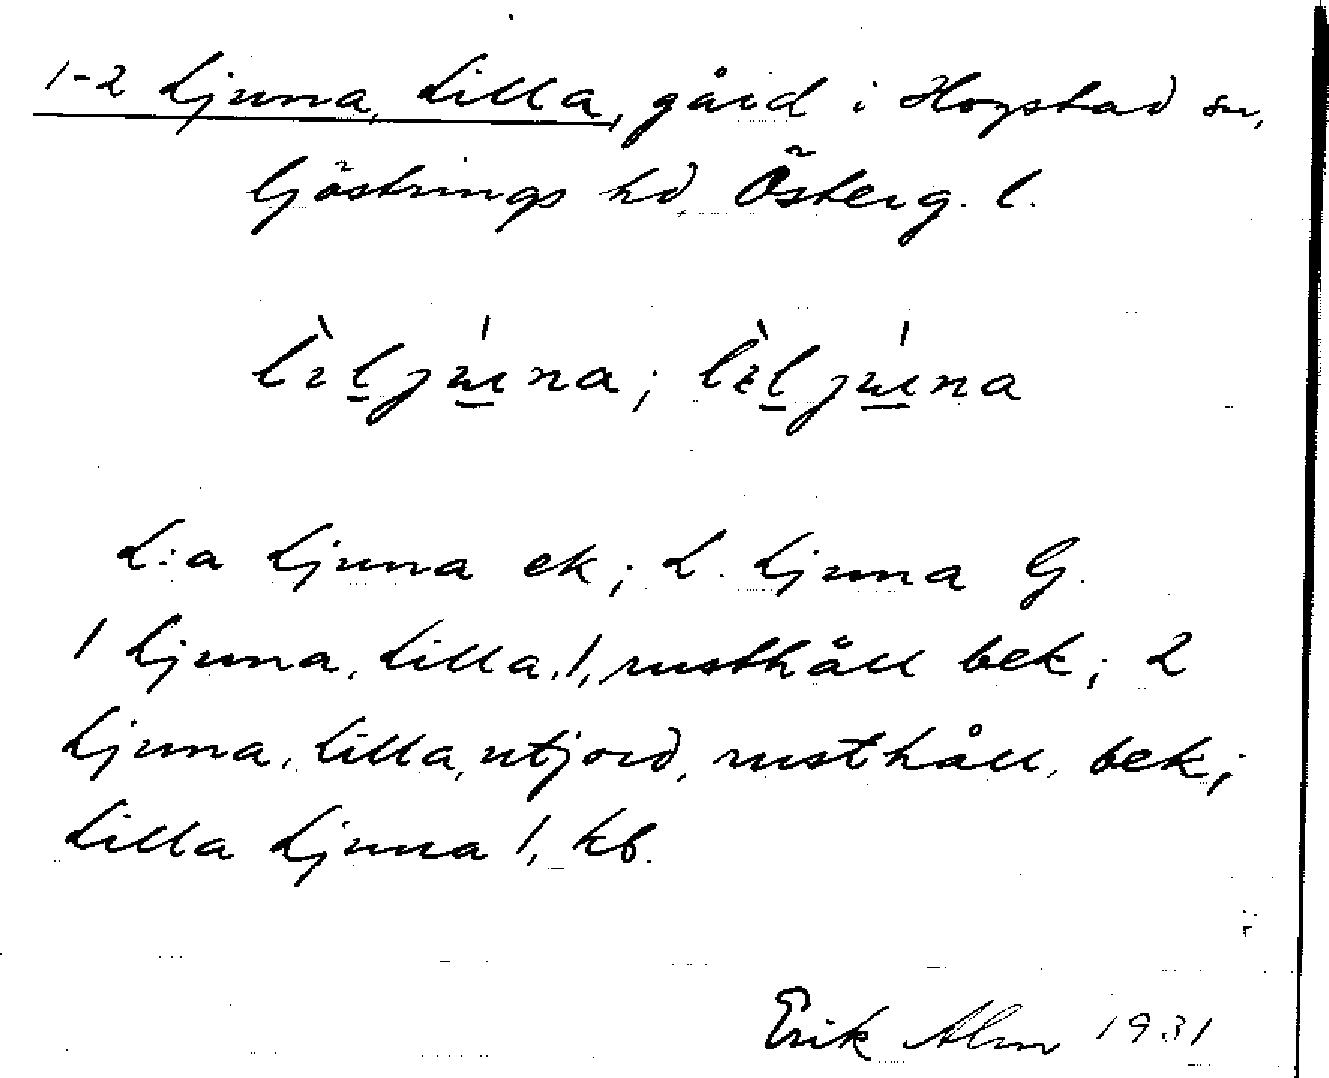 1-2 Ljuna, Lilla, gård i Hogstad sn,
Göstrings hd. Österg. l.
L:a Ljuna ek; L. Ljuna G.
1 Ljuna, Lilla, 1, rusthåll bek; 2
Ljuna, Lilla, utjord, rusthåll, bek;
Lilla Ljuna 1, kb.
Erik Alm 1931